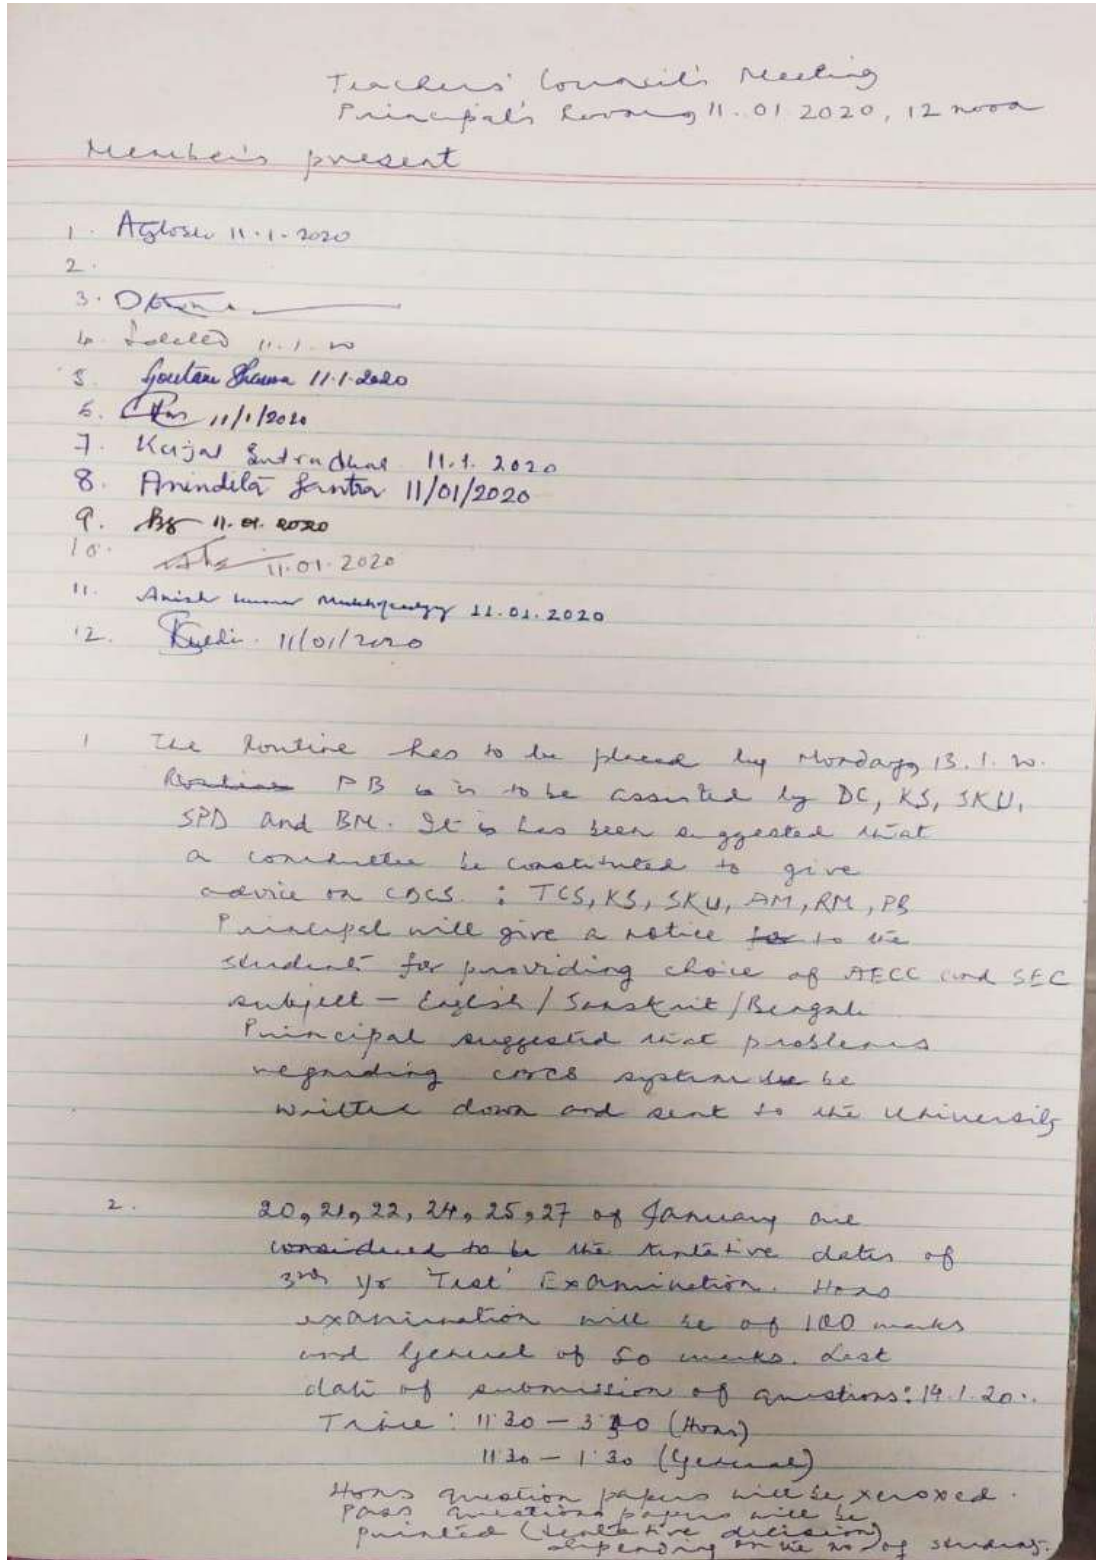 Teachers' Council's Meeting
Principal's Room, 11.01.2020, 12 noon
Member's present
1. AGhosh 11.1.2020
2.
3.
4. 11.1.20
5. Goutam Sharma 11.1.2020
6. 11/1/2020
7. Kajal Sutradhar 11.1.2020
8. Anindita Santra 11/01/2020
9. 11.01.2020
10. 11.01.2020
11. Anish Kumar Mukhopadhyay 11.01.2020
12. 11/01/2020
1 The Routine has to be placed by Monday, 13.1.20.
Routine PB is to be assisted by DC, KS, SKU,
SPD and BM. It is has been suggested that
a committee be constituted to give
advice on CBCS. : TCS, KS, SKU, AM, RM, PB
Principal will give a notice for to the
students for providing choice of AECC and SEC
subject - English / Sanskrit / Bengali
Principal suggested that problems
regarding CBCS system be
written down and sent to the University
2. 20, 21, 22, 24, 25, 27 of January are
considered to be the tentative dates of
3rd yr 'Test' Examination. Hons
examination will be of 100 marks
and General of 50 marks. Last
date of submission of questions: 14.1.20.
Time : 11.30 - 3.30 (Hons)
11.30 - 1.30 (General)
Hons question papers will be xeroxed.
Pass questions papers will be
printed (tentative decision)
depending on the no of students.